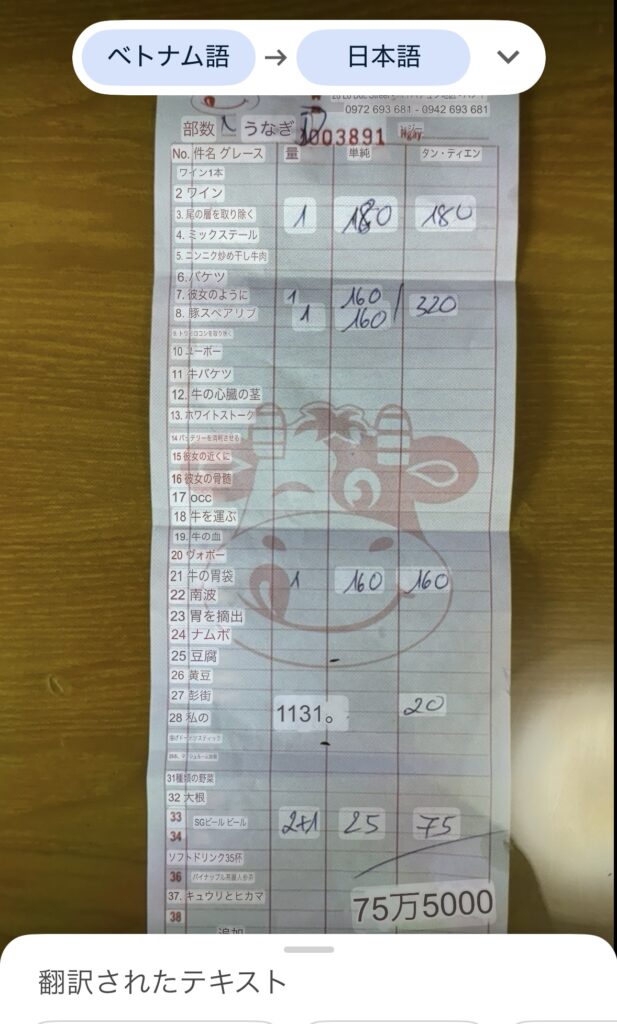 ベトナム語 → 日本語
0972 693 681 - 0942 693 681
部数 うなぎ 003891 Ngày
No. 件名 グレース 量 単純 タン・ティエン
ワイン1本
2 ワイン
3. 尾の層を取り除く 1 180 180
4. ミックステール
5. ニンニク炒め干し牛肉
6. バケツ
7. 彼女のように 1 160
8. 豚スペアリブ 1 160 320
10 ユーボー
11 牛バケツ
12. 牛の心臓の茎
13. ホワイトストーク
14 バッテリーを消耗させる
15 彼女の近くに
16 彼女の骨髄
17 occ
18 牛を運ぶ
19. 牛の血
20 ヴォボー
21 牛の胃袋 1 160 160
22 南波
23 胃を摘出
24 ナムポ
25 豆腐
26 黄豆
27 彭街
28 私の 1131。 20
31種類の野菜
32 大根
33 SGビール ビール 2+1 25 75
34
ソフトドリンク35杯
36
37. キュウリとヒカマ
75万5000
38
追加
翻訳されたテキスト